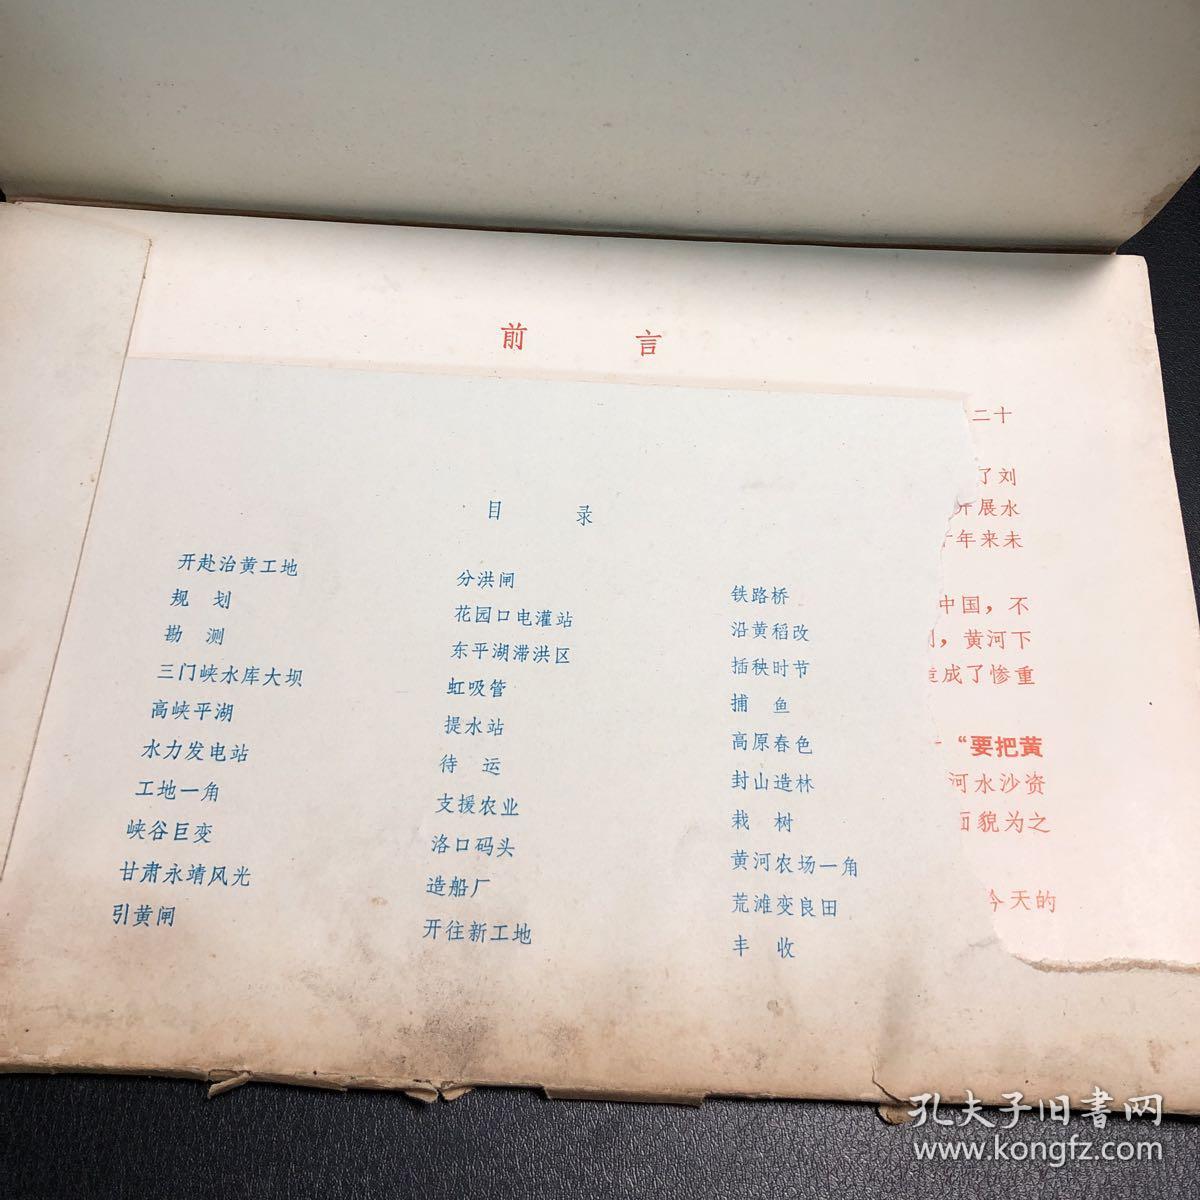 前 言
二十
了刘
开展水
年来未
中国，不
，黄河下
造成了惨重
“要把黄
河水沙资
面貌为之
今天的
目 录
开赴治黄工地
规 划
勘 测
三门峡水库大坝
高峡平湖
水力发电站
工地一角
峡谷巨变
甘肃永靖风光
引黄闸
分洪闸
花园口电灌站
东平湖滞洪区
虹吸管
提水站
待 运
支援农业
洛口码头
造船厂
开往新工地
铁路桥
沿黄稻改
插秧时节
捕 鱼
高原春色
封山造林
栽 树
黄河农场一角
荒滩变良田
丰 收
孔夫子旧書网
www.kongfz.com